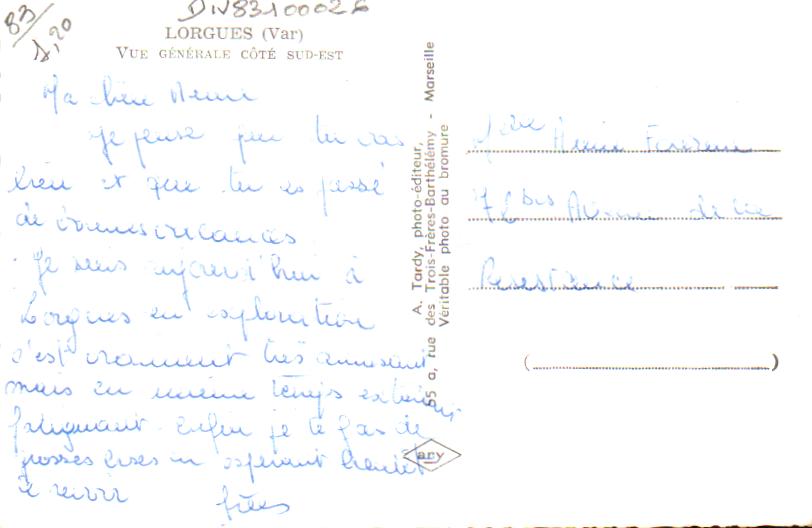 83
1,20
DN83100026
LORGUES (Var)
VUE GÉNÉRALE CÔTÉ SUD-EST
Ma
Je pense que tu vas
bien et que tu as passé
de bonnes vacances.
Je suis aujourd'hui à
Lorgues en exploration
c'est vraiment très amusant
mais en même temps
fatiguant. Enfin je te fais de
grosses bises en espérant bientôt
te revoir
A. Tardy, photo-éditeur,
55 a, rue des Trois-Frères-Barthélémy - Marseille
Véritable photo au bromure
bis Avenue de la
Resistance
( )
ary